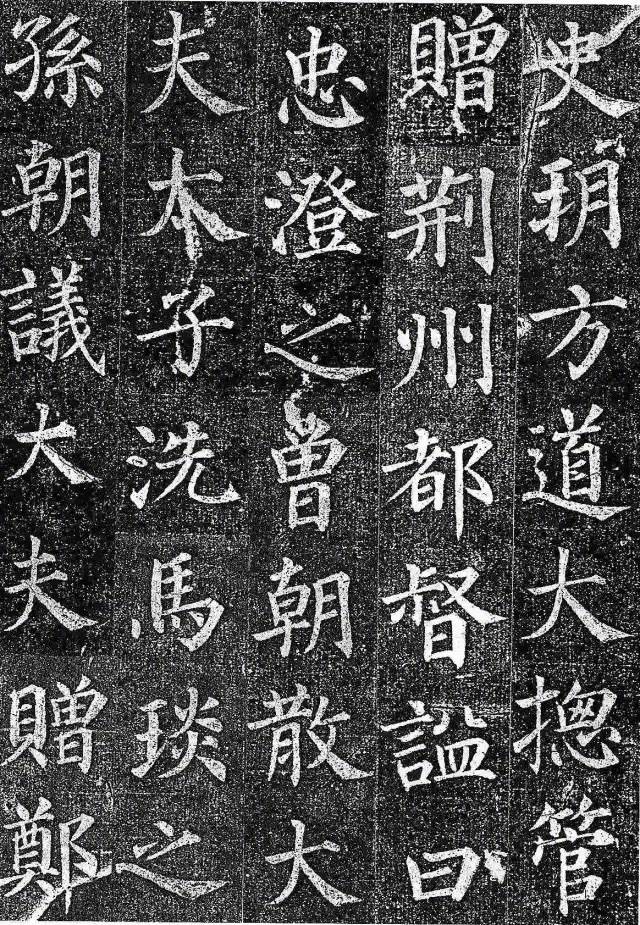 史朔方道大揔管
贈荊州都督謚曰
忠澄之曾朝散大
夫太子洗馬琰之
孫朝議大夫贈鄭